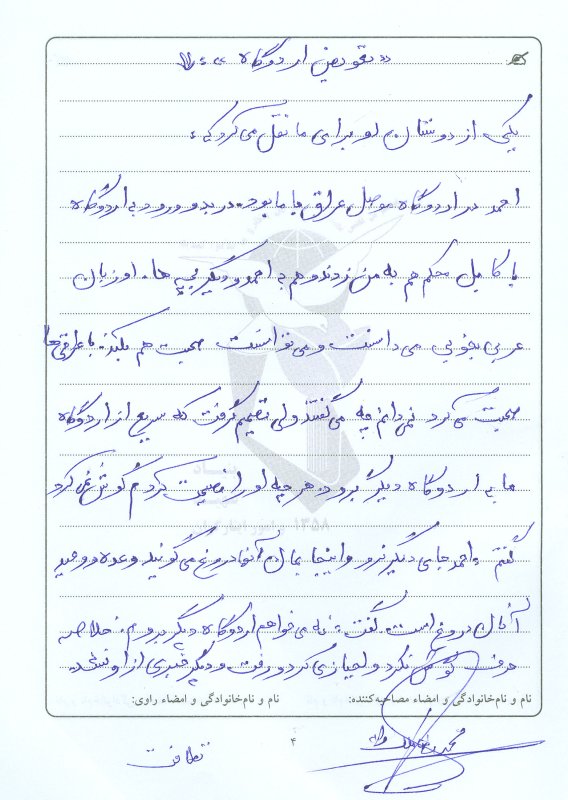 « تعویض اردوگاه »
یکی از دوستان او برای ما نقل می‌کرد که:
احمد در اردوگاه موصل عراق با ما بود. در بدو ورود به اردوگاه
با کابل محکم هم به من زدند و هم به احمد و دیگر بچه‌ها. او زبان
عربی بخوبی می‌دانست و می‌توانست صحبت هم بکند. با عراقی‌ها
صحبت می‌کرد نمی‌دانم چه می‌گفتند ولی تصمیم گرفت که سریع از اردوگاه
ما به اردوگاه دیگر برود. هر چه او را نصیحت کردم گوش نمی‌کرد
گفتم احمد جای دیگر نرو و اینجا بمان آنها دروغ می‌گویند وعده و وعید
آنان دروغ است. گفت: نه می‌خواهم اردوگاه دیگر بروم. خلاصه
حرف گوش نکرد و لجبازی کرد و رفت و دیگر خبری از او نشد.
نام و نام‌خانوادگی و امضاء مصاحبه‌کننده: نام و نام‌خانوادگی و امضاء راوی:
۴